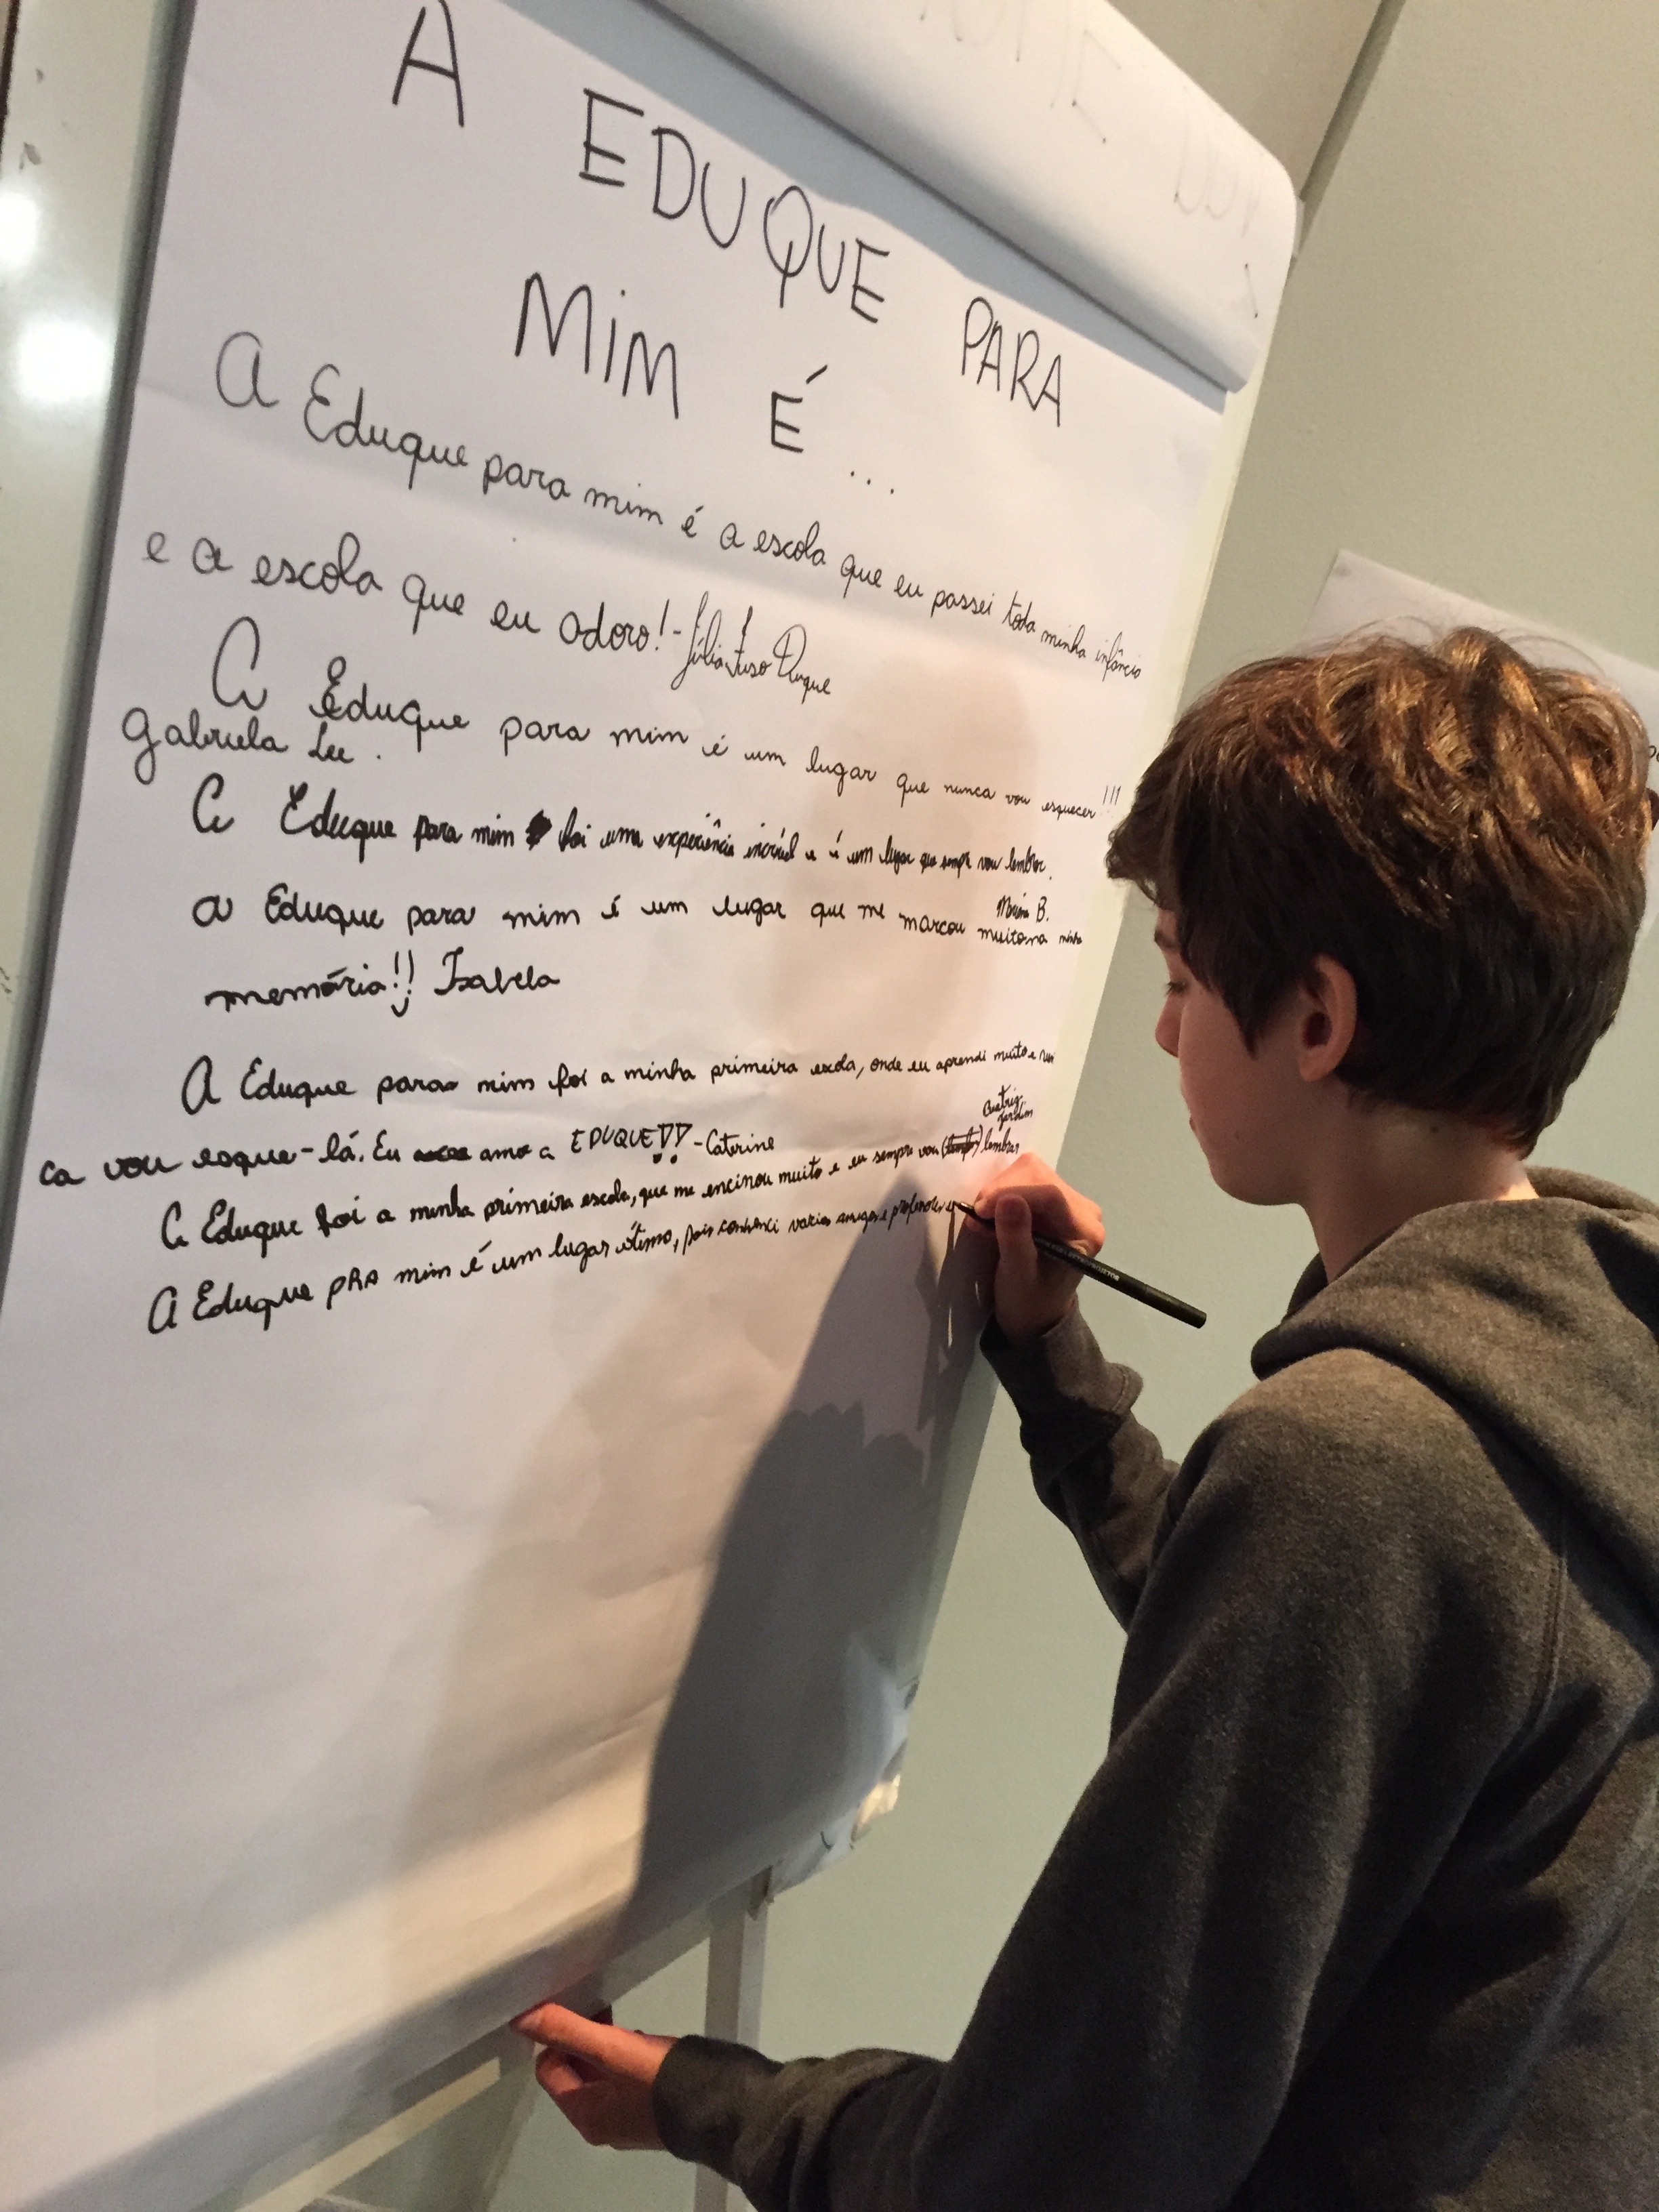 A EDUQUE PARA
MIM É...
A Eduque para mim é a escola que eu passei toda minha infância
e a escola que eu adoro! - Júlia Fuso Duque
A Eduque para mim é um lugar que nunca vou esquecer!!!
Gabriela Lee.
A Eduque para mim foi uma experiência incrível e é um lugar que sempre vou lembrar.
B.
a Eduque para mim é um lugar que me marcou muito na minha
memória!! Isabela
A Eduque para mim foi a minha primeira escola, onde eu aprendi muito e nun
ca vou esque-lá. Eu amo a EDUQUE!! - Caterine
A Eduque foi a minha primeira escola, que me encinou muito e eu sempre vou lembrar
Beatriz
Jardim
A Eduque PRA mim é um lugar ótimo, pois conheci varios amigos e professores